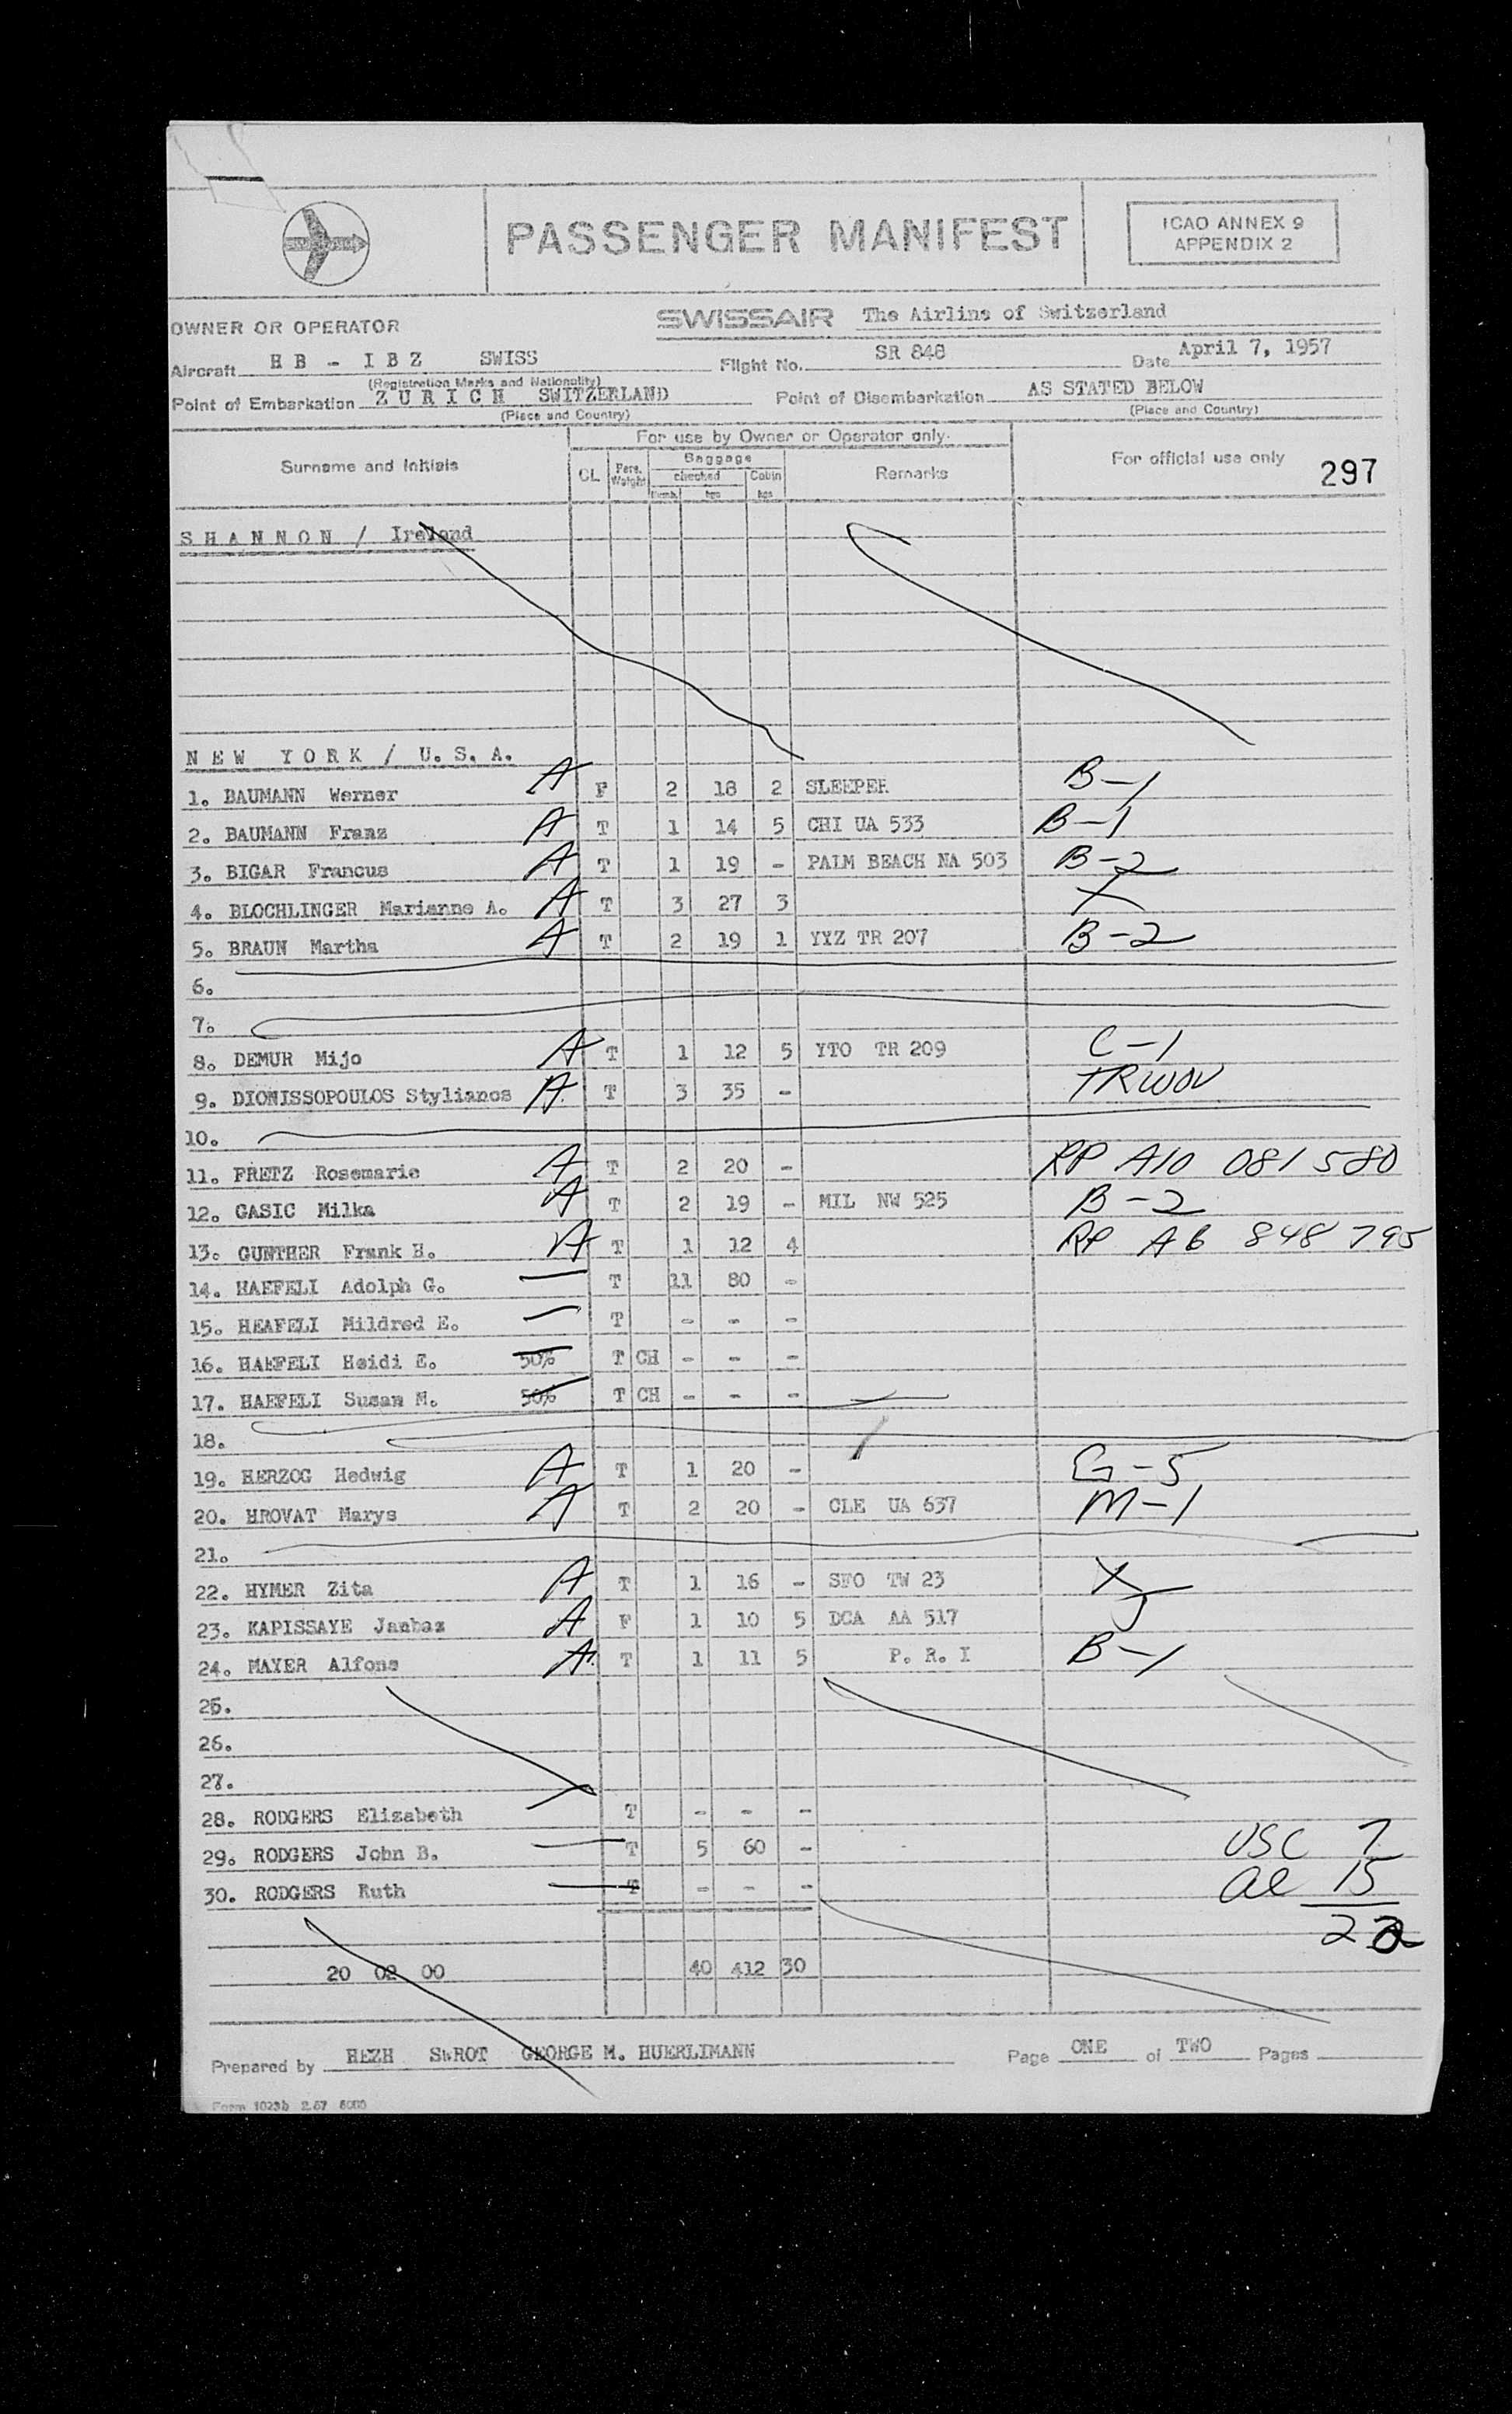 PASSENGER MANIFEST
ICAO ANNEX 9
APPENDIX 2
OWNER OR OPERATOR SWISSAIR The Airline of Switzerland
Aircraft HB - IBZ SWISS Flight No. SR 848 Date April 7, 1957
(Registration Marks and Nationality)
Point of Embarkation ZURICH SWITZERLAND Point of Disembarkation AS STATED BELOW
(Place and Country) (Place and Country)
For use by Owner or Operator only
Surname and Initials CL Pers. Weight Baggage checked Cabin Remarks For official use only 297
Numb. kgs kgs
SHANNON / Ireland
NEW YORK / U.S.A.
1. BAUMANN Werner A F 2 18 2 SLEEPER B-1
2. BAUMANN Franz A T 1 14 5 CHI UA 533 B-1
3. BIGAR Francus A T 1 19 - PALM BEACH NA 503 B-2
4. BLOCHLINGER Marianne A. A T 3 27 3 X
5. BRAUN Martha A T 2 19 1 YYZ TR 207 B-2
6.
7.
8. DEMUR Mijo A T 1 12 5 YTO TR 209 C-1
9. DIONISSOPOULOS Stylianos A T 3 35 - TRWOV
10.
11. FRETZ Rosemarie A T 2 20 - RP A10 081 580
12. GASIC Milka A T 2 19 - MIL NW 525 B-2
13. GUNTHER Frank H. A T 1 12 4 RP A6 848 795
14. HAEFELI Adolph G. — T 11 80 -
15. HEAFELI Mildred E. — T - - -
16. HAEFELI Heidi E. 50% T CH - - -
17. HAEFELI Susan M. 50% T CH - - -
18.
19. HERZOG Hedwig A T 1 20 - G-5
20. HROVAT Marys A T 2 20 - CLE UA 637 M-1
21.
22. HYMER Zita A T 1 16 - SFO TW 23 X
23. KAPISSAYE Janbaz A F 1 10 5 DCA AA 517
24. MAYER Alfons A T 1 11 5 P. R. I B-1
25.
26.
27.
28. RODGERS Elizabeth — T - - -
29. RODGERS John B. — T 5 60 - USC 7
30. RODGERS Ruth — T - - - al 15
22
20 02 00 40 412 30
Prepared by HEZH SWROT GEORGE M. HUERLIMANN Page ONE of TWO Pages
Form 1023b 2.57 5000